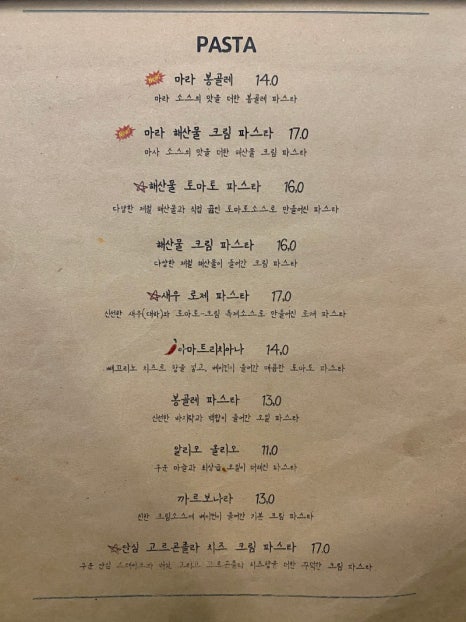 PASTA
마라 봉골레 14.0
마라 소스의 맛을 더한 봉골레 파스타
마라 해산물 크림 파스타 17.0
마사 소스의 맛을 더한 해산물 크림 파스타
해산물 토마토 파스타 16.0
다양한 제철 해산물과 직접 끓인 토마토소스로 만들어진 파스타
해산물 크림 파스타 16.0
다양한 제철 해산물이 들어간 크림 파스타
새우 로제 파스타 17.0
신선한 새우(대하)와 토마토-크림 특제소스로 만들어진 로제 파스타
아마트리치아나 14.0
치즈로 맛을 내고, 베이컨이 들어간 매콤한 토마토 파스타
봉골레 파스타 13.0
신선한 바지락과 백합이 들어간 오일 파스타
알리오 올리오 11.0
구운 마늘과 최상급 오일이 더해진 파스타
까르보나라 13.0
진한 크림소스에 베이컨이 들어간 기본 크림 파스타
안심 고르곤졸라 치즈 크림 파스타 17.0
구운 안심 그리고 고르곤졸라 치즈향을 더한 크림 파스타